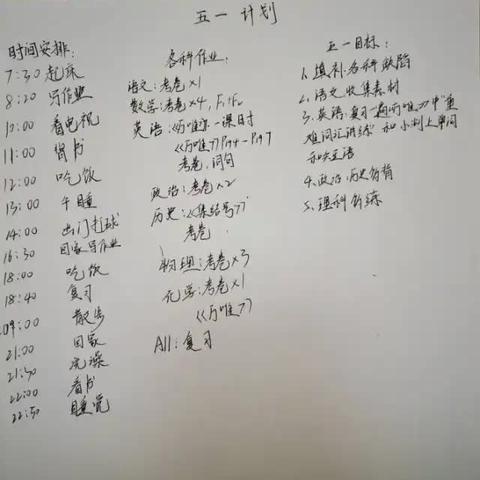 五一 计划
时间安排:
7:30 起床
8:20 写作业
10:00 看电视
11:00 背书
12:00 吃饭
13:00 午睡
14:00 出门打球
16:30 回家写作业
18:00 吃饭
18:40 复习
09:00 散步
21:00 回家
21:30 洗澡
22:00 看书
22:30 睡觉
各科作业:
语文:考卷×1
数学:考卷×4,
英语:《万唯》一课时
《万唯》P94-P97
考卷、词句
政治:考卷×2
历史:《集结号》
考卷
物理:考卷×3
化学:考卷×1
《万唯》
All:复习
五一目标:
1、填补各科缺陷
2、语文收集素材
3、英语:复习一遍《万唯》中"重
难词汇训练" 和小册上单词
和短语
4、政治、历史
5、理科多练